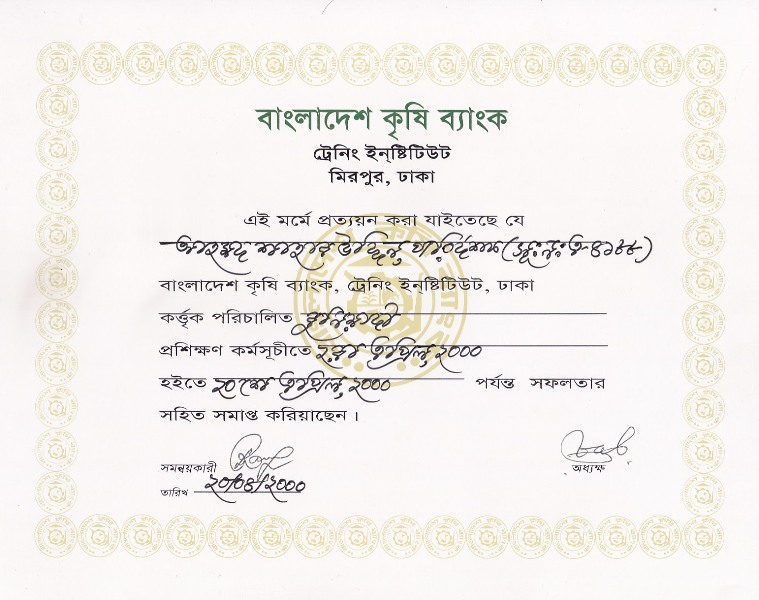 বাংলাদেশ কৃষি ব্যাংক
ট্রেনিং ইন্‌ষ্টিটিউট
মিরপুর, ঢাকা
এই মর্মে প্রত্যয়ন করা যাইতেছে যে
বাংলাদেশ কৃষি ব্যাংক, ট্রেনিং ইন্‌ষ্টিটিউট, ঢাকা
কর্তৃক পরিচালিত বুনিয়াদী
প্রশিক্ষণ কর্মসূচীতে ২রা এপ্রিল, ২০০০
হইতে ২০শে এপ্রিল, ২০০০ পর্যন্ত সফলতার
সহিত সমাপ্ত করিয়াছেন।
সমন্বয়কারী
অধ্যক্ষ
তারিখ ২০/০৪/২০০০